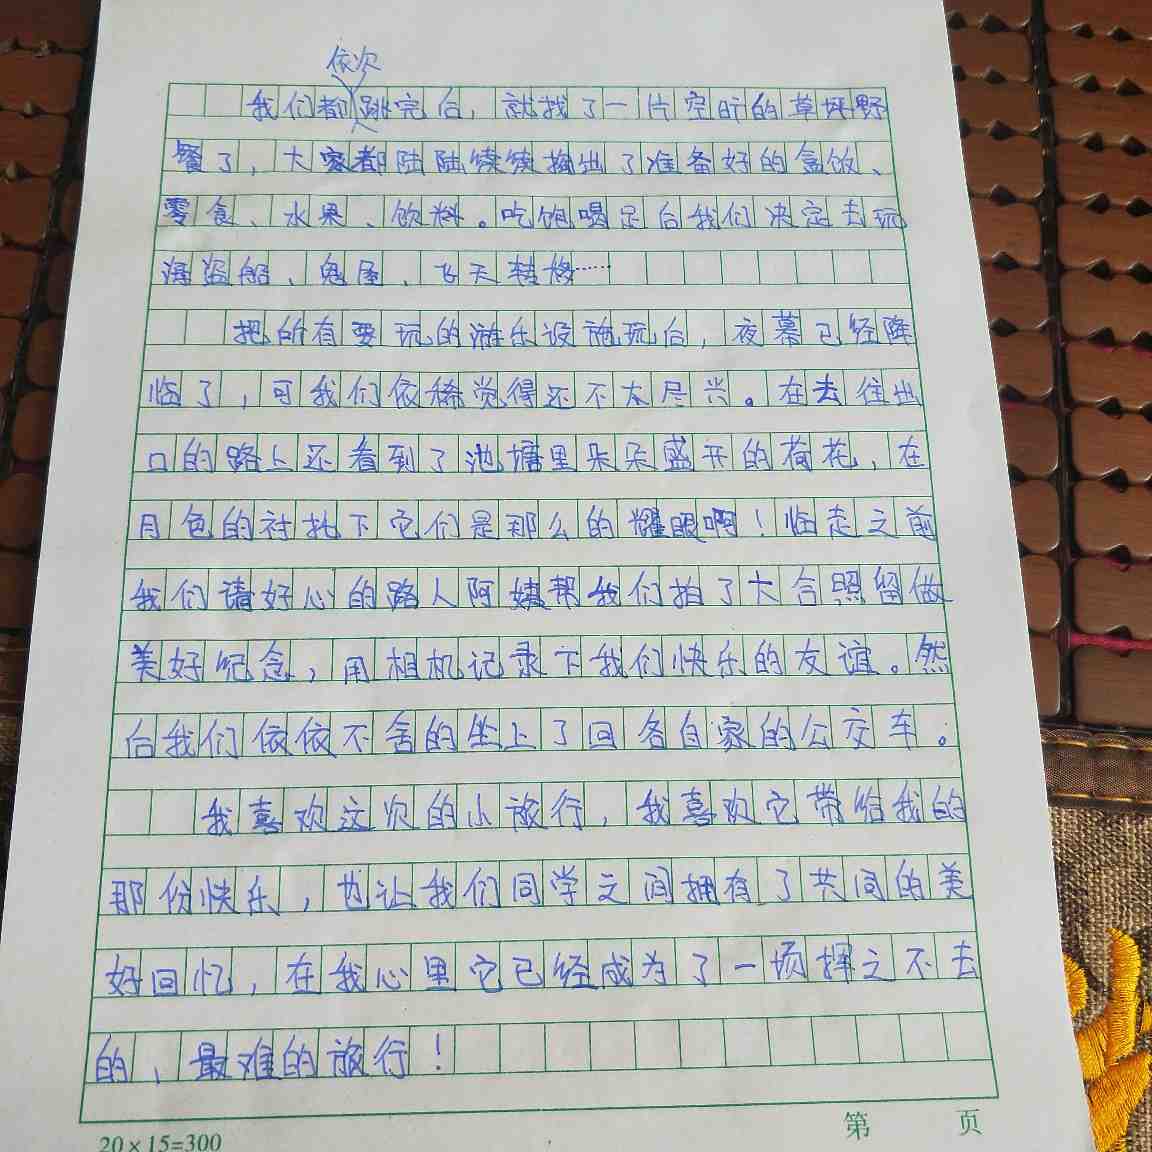 依次
我们都跳完后，就找了一片空旷的草坪野
餐了，大家都陆陆续续掏出了准备好的盒饭、
零食、水果、饮料。吃饱喝足后我们决定去玩
海盗船、鬼屋、飞天转椅……
把所有要玩的游乐设施玩后，夜幕已经降
临了，可我们依稀觉得还不太尽兴。在去往出
口的路上还看到了池塘里朵朵盛开的荷花，在
月色的衬托下它们是那么的耀眼啊！临走之前
我们请好心的路人阿姨帮我们拍了大合照留做
美好纪念，用相机记录下我们快乐的友谊。然
后我们依依不舍的坐上了回各自家的公交车。
我喜欢这次的小旅行，我喜欢它带给我的
那份快乐，也让我们同学之间拥有了共同的美
好回忆，在我心里它已经成为了一项挥之不去
的、最难的旅行！
第 页
20×15=300